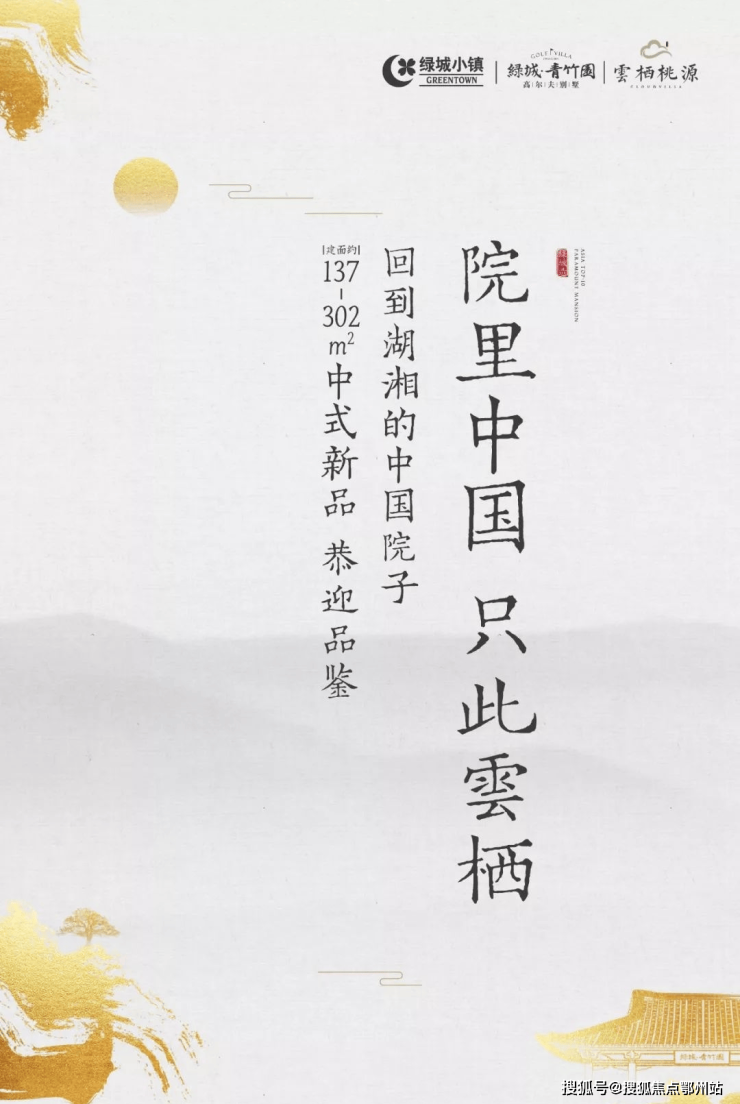 绿城小镇
GREENTOWN
GOLF VILLA
綠城·青竹園
高尔夫别墅
雲栖桃源
ASIA TOP-10
PARAMOUNT MANSION
院里中国 只此雲栖
回到湖湘的中国院子
建面約
137-302m²中式新品 恭迎品鉴
綠城·青竹園
搜狐号@搜狐焦点鄂州站